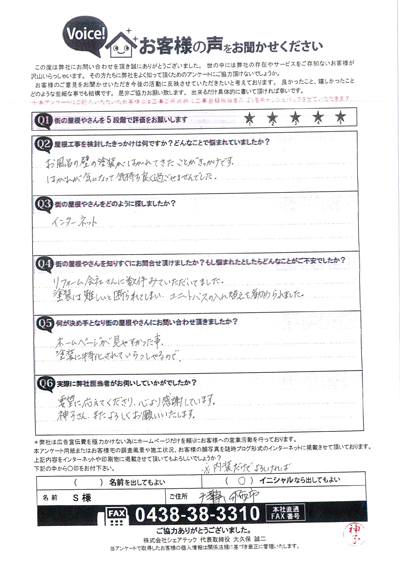 Voice!
お客様の声をお聞かせください
この度は弊社にお問い合わせ頂き誠にありがとうございました。世の中には弊社の存在やサービスをご存知ないお客様が
沢山いらっしゃいます。その方たちに弊社をよく知って頂くためのアンケートにご協力頂けないでしょうか。
お客様のご意見をお聞かせいただき今後の活動に反映させていただきたいと考えております。良かったこと、嬉しかったこと
どのような些細な事でも結構です。是非ご協力お願い致します。出来るだけ具体的に書いて頂ければ幸いです。
Q1 街の屋根やさんを5段階で評価をお願いします ★ ★ ★ ★ ★
Q2 屋根工事を検討したきっかけは何ですか?どんなことで悩まれていましたか?
お風呂の壁の塗装がはがれてきたことがきっかけです。
はがれが気になって気持ち良く過ごせませんでした。
Q3 街の屋根やさんをどのように探しましたか?
インターネット
Q4 街の屋根やさんを知りすぐにお問合せ頂けましたか?もし悩まれたとしたらどんなことがご不安でしたか?
リフォーム会社さんに数件みていただいてました。
塗装は難しいと断られてしまい、ユニットバスの入れ替えを勧められました。
Q5 何が決め手となり街の屋根やさんにお問い合わせ頂きましたか?
ホームページが見やすかった事、
塗装に特化されていらっしゃるので、
Q6 実際に弊社担当者がお伺いしていかがでしたか?
要望に応えてくださり、心より感謝しています。
神子さん、またよろしくお願いいたします。
*弊社は広告宣伝費を極力かけない為にホームページだけを頼りにお客様への営業活動を行っております。
本アンケート用紙またはお客様宅の調査風景や施工状況、お客様の顔写真を随時ブログ形式のインターネットに掲載させて頂いております。
上記内容をインターネットや印刷物に掲載させて頂いてもよろしいでしょうか?
下記の中から○印をお付け下さい。
※内装だけでよろしければ
( ) 名前を出してもよい (○) イニシャルなら出してもよい
名前 S様 ご住所 千葉
FAX 0438-38-3310 本社直通 FAX番号
ご協力ありがとうございました。
株式会社シェアテック 代表取締役 大久保 誠二
当アンケートで取得したお客様の個人情報は関係法規に基づき厳正に管理いたします。